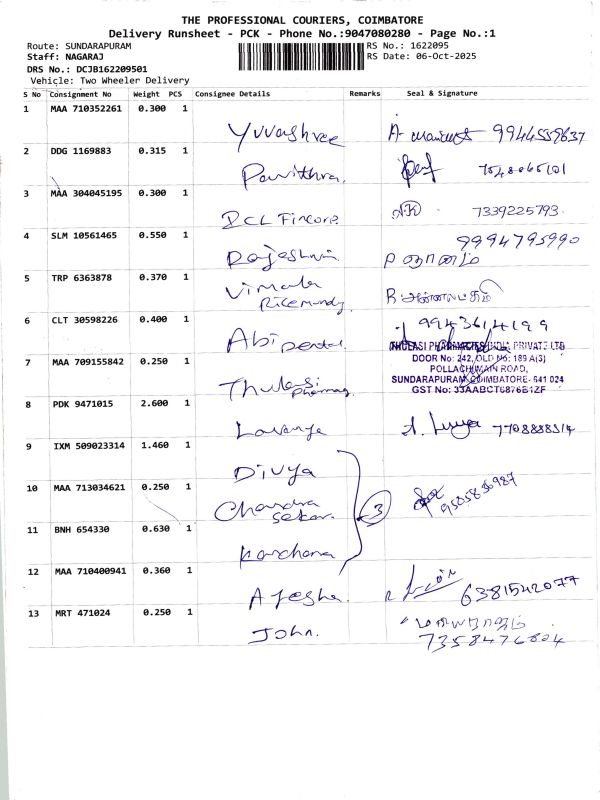 THE PROFESSIONAL COURIERS, COIMBATORE
Delivery Runsheet - PCK - Phone No.:9047080280 - Page No.:1
Route: SUNDARAPURAM
RS No.: 1622095
Staff: NAGARAJ
RS Date: 06-Oct-2025
DRS No.: DCJB162209501
Vehicle: Two Wheeler Delivery
S No Consignment No Weight PCS Consignee Details Remarks Seal & Signature
1 MAA 710352261 0.300 1
Yuvashree 9944559637
2 DDG 1169883 0.315 1
Pavithra.
3 MAA 304045195 0.300 1
DCL Fincorp 7339225793
4 SLM 10561465 0.550 1
9994795990
Rajeshwari
5 TRP 6363878 0.370 1
Vimala
Ricemundy
6 CLT 30598226 0.400 1
9943614199
Abi dental.
THULASI PHARMACIES INDIA PRIVATE LTD
DOOR No: 242, OLD No: 189 A(3)
7 MAA 709155842 0.250 1
POLLACHI MAIN ROAD,
SUNDARAPURAM, COIMBATORE- 641 024
Thulasi
pharmacy
GST No: 33AABCT6876B1ZF
8 PDK 9471015 2.600 1
Lavanya 7708888514
9 IXM 509023314 1.460 1
Divya
10 MAA 713034621 0.250 1
Chandra
sekar. 3
11 BNH 654330 0.630 1
Kanchana
12 MAA 710400941 0.360 1
Ayesha. 6381542077
13 MRT 471024 0.250 1
John.
7358476804